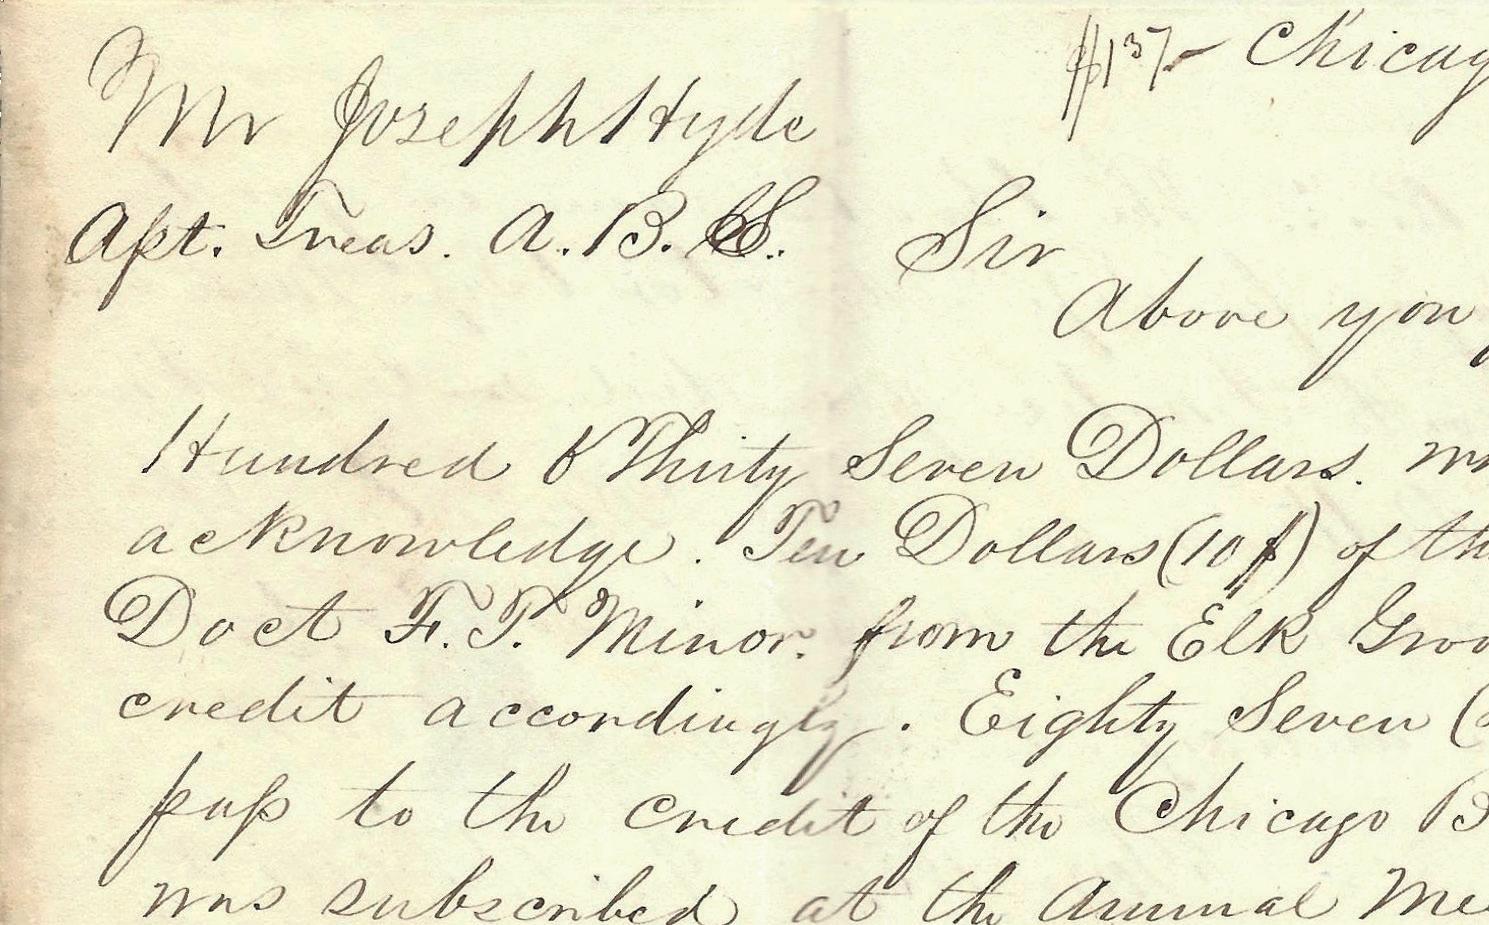 $137- Chicag
Mr Joseph Hyde
Asst. Treas. A. B. S. Sir
Above you
Hundred & Thirty Seven Dollars.
acknowledge. Ten Dollars (10$) of th
Doct F. T. Minor. from the Elk Grov
credit accordingly. Eighty Seven (
pass to the credit of the Chicago B
was subscribed at the Annual Me